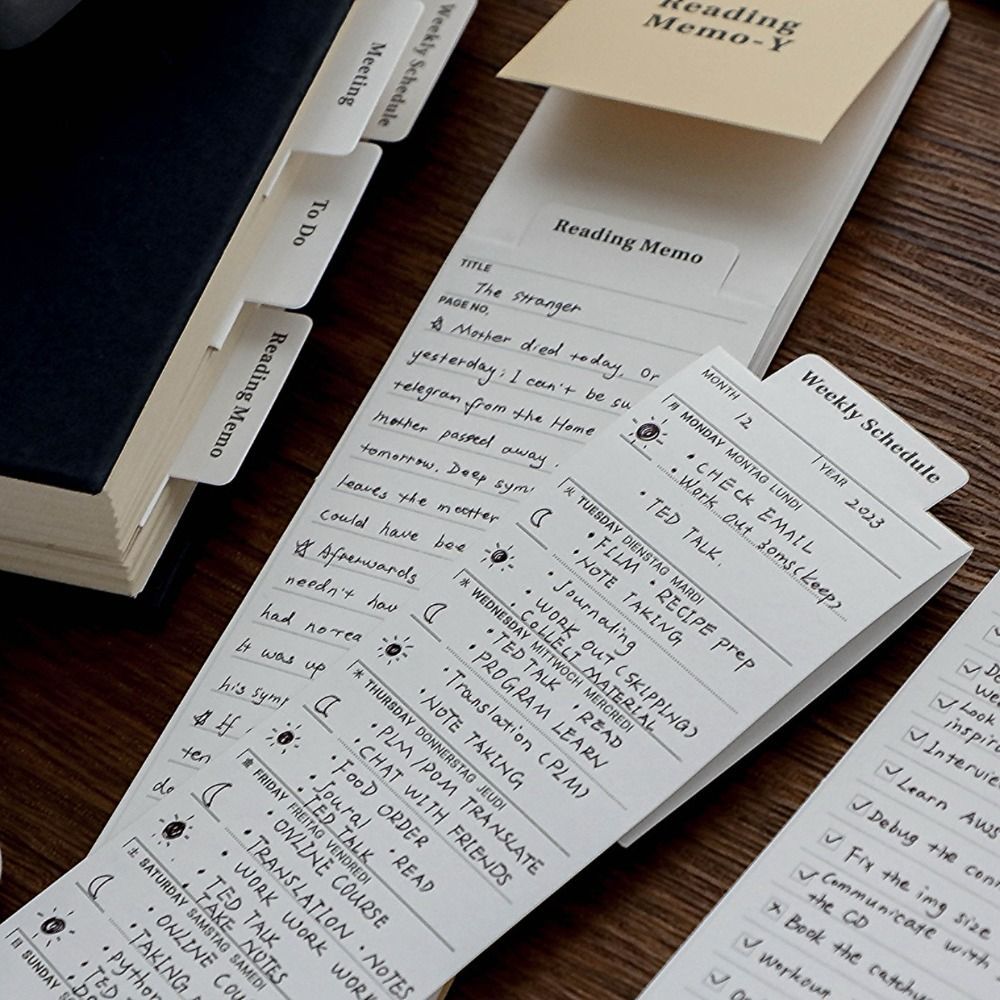 Weekly Schedule
Meeting
To Do
Reading Memo
Reading
Memo-Y
Reading Memo
TITLE
The stranger
PAGE NO.
Mother died today. Or
yesterday; I can't be su
telegram from the Home
mother passed away.
tomorrow. Deep sym
leaves the matter
could have bee
Afterwards
needn't hav
had no rea
it was up
his symp
If
ten
do
Weekly Schedule
MONTH 12 YEAR 2023
月 MONDAY MONTAG LUNDI
• CHECK EMAIL
• Work out 30ms(keep)
• TED TALK.
火 TUESDAY DIENSTAG MARDI
• FILM • RECIPE prep
• NOTE TAKING
• Journaling
• WORK OUT (SKIPPING)
• COLLECT MATERIAL
水 WEDNESDAY MITTWOCH MERCREDI
• TED TALK • READ
• PROGRAM LEARN
• Translation (PLM)
• NOTE TAKING
木 THURSDAY DONNERSTAG JEUDI
• PLM/POM TRANSLATE
• CHAT WITH FRIENDS
• FOOD ORDER
• Joural • READ
• TED TALK
金 FRIDAY FREITAG VENDREDI
• ONLINE COURSE
• TRANSLATION • NOTES
• WORK WORK WORK
• TED TALK
• TAKE NOTES
土 SATURDAY SAMSTAG SAMEDI
• ONLINE COU
• TAKING
• python
• TED
日 SUNDAY
Look
inspira
Intervie
Learn AWS
Debug the con
Fix the img size
Communicate with
the CD
Book the catchup
Workout